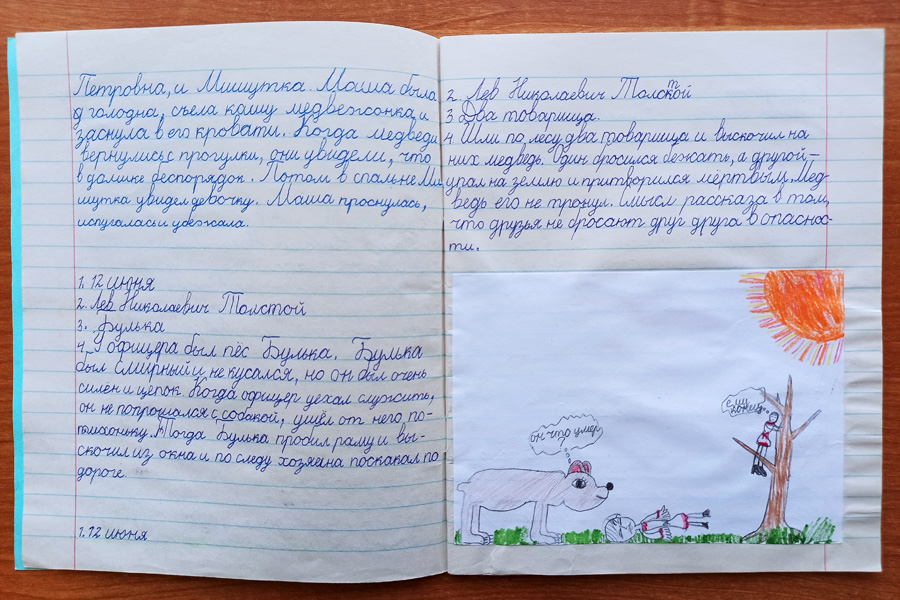 Петровна, и Мишутка. Маша была
голодна, съела кашу медвежонка и
заснула в его кровати. Когда медведи
вернулись с прогулки, они увидели, что
в домике беспорядок. Потом в спальне Ми
шутка увидел девочку. Маша проснулась,
испугалась и убежала.
1. 12 июня
2. Лев Николаевич Толстой
3. Булька
4. У офицера был пёс Булька. Булька
был смирный и не кусался, но он был очень
силён и цепок. Когда офицер уехал служить,
он не попрощался с собакой, ушёл от него по-
тихоньку. Тогда Булька пробил раму и вы-
скочил из окна и по следу хозяина поскакал по
дороге.
1. 12 июня
2. Лев Николаевич Толстой
3. Два товарища.
4. Шли по лесу два товарища и выскочил на
них медведь. Один бросился бежать, а другой –
упал на землю и притворился мёртвым. Мед-
ведь его не тронул. Смысл рассказа в том,
что друзья не бросают друг друга в опаснос-
ти.
он что умер
ему